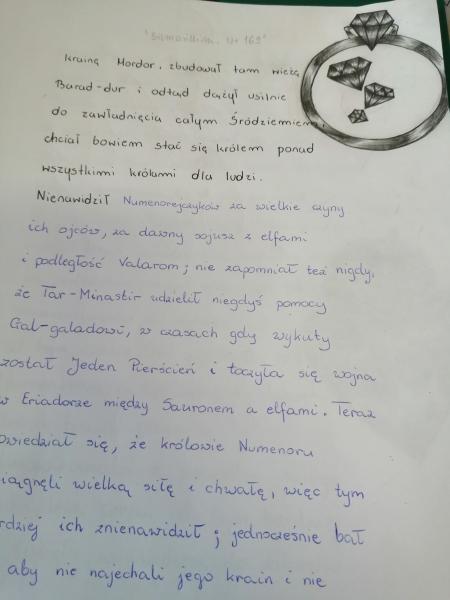 "Silmarillion. str 169"
krainą Mordor, zbudował tam wieżę
Barad-dur i odtąd dążył usilnie
do zawładnięcia całym Śródziemiem,
chciał bowiem stać się królem ponad
wszystkimi królami dla ludzi.
Nienawidził Numenorejczyków za wielkie czyny
ich ojców, za dawny sojusz z elfami
i podległość Valarom; nie zapomniał też nigdy,
że Tar-Minastir udzielił niegdyś pomocy
Gal-galadowi, w czasach gdy wykuty
został Jeden Pierścień i toczyła się wojna
w Eriadorze między Sauronem a elfami. Teraz
owiedział się, że królowie Numenoru
iągnęli wielką siłę i chwałę, więc tym
rdziej ich znienawidził; jednocześnie bał
aby nie najechali jego krain i nie